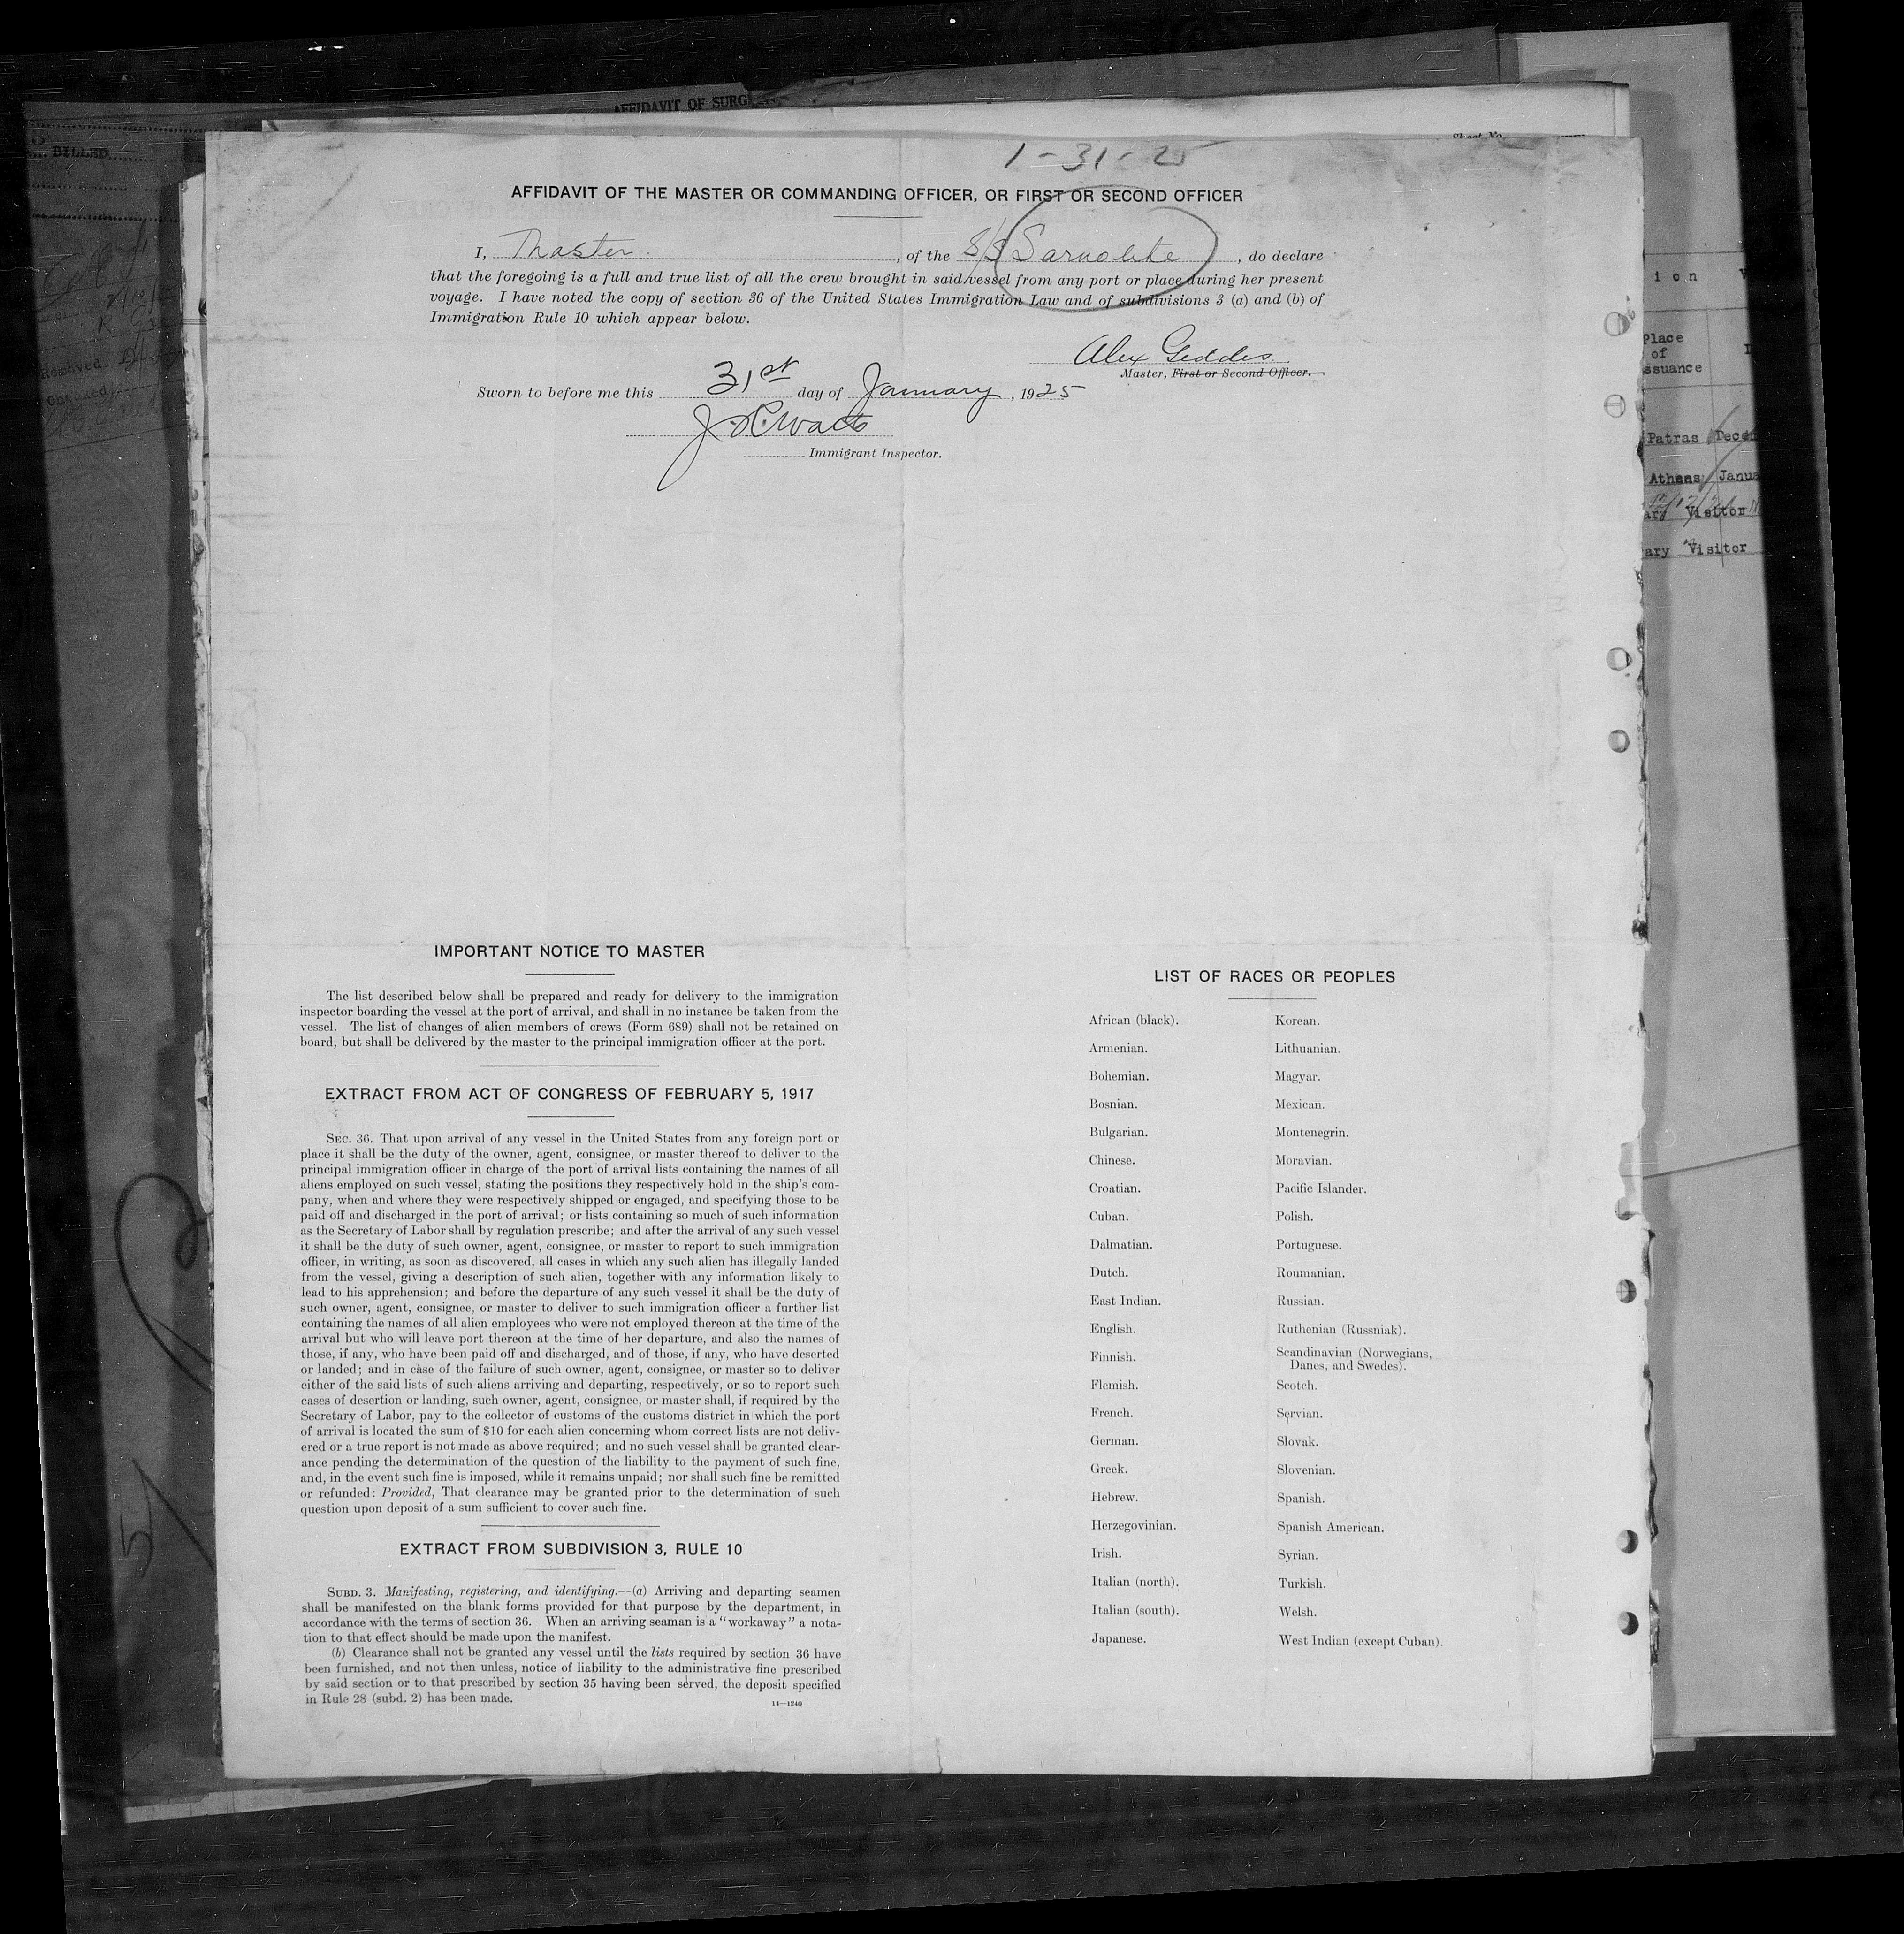 AFFIDAVIT OF SURG
BILLED
1-31-25
AFFIDAVIT OF THE MASTER OR COMMANDING OFFICER, OR FIRST OR SECOND OFFICER
I, Master, of the S/S Sarnolite, do declare
that the foregoing is a full and true list of all the crew brought in said vessel from any port or place during her present
voyage. I have noted the copy of section 36 of the United States Immigration Law and of subdivisions 3 (a) and (b) of
Immigration Rule 10 which appear below.
Alex Geddes
Master, First or Second Officer.
Sworn to before me this 31st day of January, 1925
Immigrant Inspector.
Place
of
ssuance
Patras Decem
Athens Janua
ary Visitor
ary Visitor
Removed
IMPORTANT NOTICE TO MASTER
The list described below shall be prepared and ready for delivery to the immigration
inspector boarding the vessel at the port of arrival, and shall in no instance be taken from the
vessel. The list of changes of alien members of crews (Form 689) shall not be retained on
board, but shall be delivered by the master to the principal immigration officer at the port.
EXTRACT FROM ACT OF CONGRESS OF FEBRUARY 5, 1917
SEC. 36. That upon arrival of any vessel in the United States from any foreign port or
place it shall be the duty of the owner, agent, consignee, or master thereof to deliver to the
principal immigration officer in charge of the port of arrival lists containing the names of all
aliens employed on such vessel, stating the positions they respectively hold in the ship's com-
pany, when and where they were respectively shipped or engaged, and specifying those to be
paid off and discharged in the port of arrival; or lists containing so much of such information
as the Secretary of Labor shall by regulation prescribe; and after the arrival of any such vessel
it shall be the duty of such owner, agent, consignee, or master to report to such immigration
officer, in writing, as soon as discovered, all cases in which any such alien has illegally landed
from the vessel, giving a description of such alien, together with any information likely to
lead to his apprehension; and before the departure of any such vessel it shall be the duty of
such owner, agent, consignee, or master to deliver to such immigration officer a further list
containing the names of all alien employees who were not employed thereon at the time of the
arrival but who will leave port thereon at the time of her departure, and also the names of
those, if any, who have been paid off and discharged, and of those, if any, who have deserted
or landed; and in case of the failure of such owner, agent, consignee, or master so to deliver
either of the said lists of such aliens arriving and departing, respectively, or so to report such
cases of desertion or landing, such owner, agent, consignee, or master shall, if required by the
Secretary of Labor, pay to the collector of customs of the customs district in which the port
of arrival is located the sum of $10 for each alien concerning whom correct lists are not deliv-
ered or a true report is not made as above required; and no such vessel shall be granted clear-
ance pending the determination of the question of the liability to the payment of such fine,
and, in the event such fine is imposed, while it remains unpaid; nor shall such fine be remitted
or refunded: Provided, That clearance may be granted prior to the determination of such
question upon deposit of a sum sufficient to cover such fine.
EXTRACT FROM SUBDIVISION 3, RULE 10
SUBD. 3. Manifesting, registering, and identifying.—(a) Arriving and departing seamen
shall be manifested on the blank forms provided for that purpose by the department, in
accordance with the terms of section 36. When an arriving seaman is a "workaway" a nota-
tion to that effect should be made upon the manifest.
(b) Clearance shall not be granted any vessel until the lists required by section 36 have
been furnished, and not then unless, notice of liability to the administrative fine prescribed
by said section or to that prescribed by section 35 having been served, the deposit specified
in Rule 28 (subd. 2) has been made.
14—1240
LIST OF RACES OR PEOPLES
African (black).
Armenian.
Bohemian.
Bosnian.
Bulgarian.
Chinese.
Croatian.
Cuban.
Dalmatian.
Dutch.
East Indian.
English.
Finnish.
Flemish.
French.
German.
Greek.
Hebrew.
Herzegovinian.
Irish.
Italian (north).
Italian (south).
Japanese.
Korean.
Lithuanian.
Magyar.
Mexican.
Montenegrin.
Moravian.
Pacific Islander.
Polish.
Portuguese.
Roumanian.
Russian.
Ruthenian (Russniak).
Scandinavian (Norwegians,
Danes, and Swedes).
Scotch.
Servian.
Slovak.
Slovenian.
Spanish.
Spanish American.
Syrian.
Turkish.
Welsh.
West Indian (except Cuban).